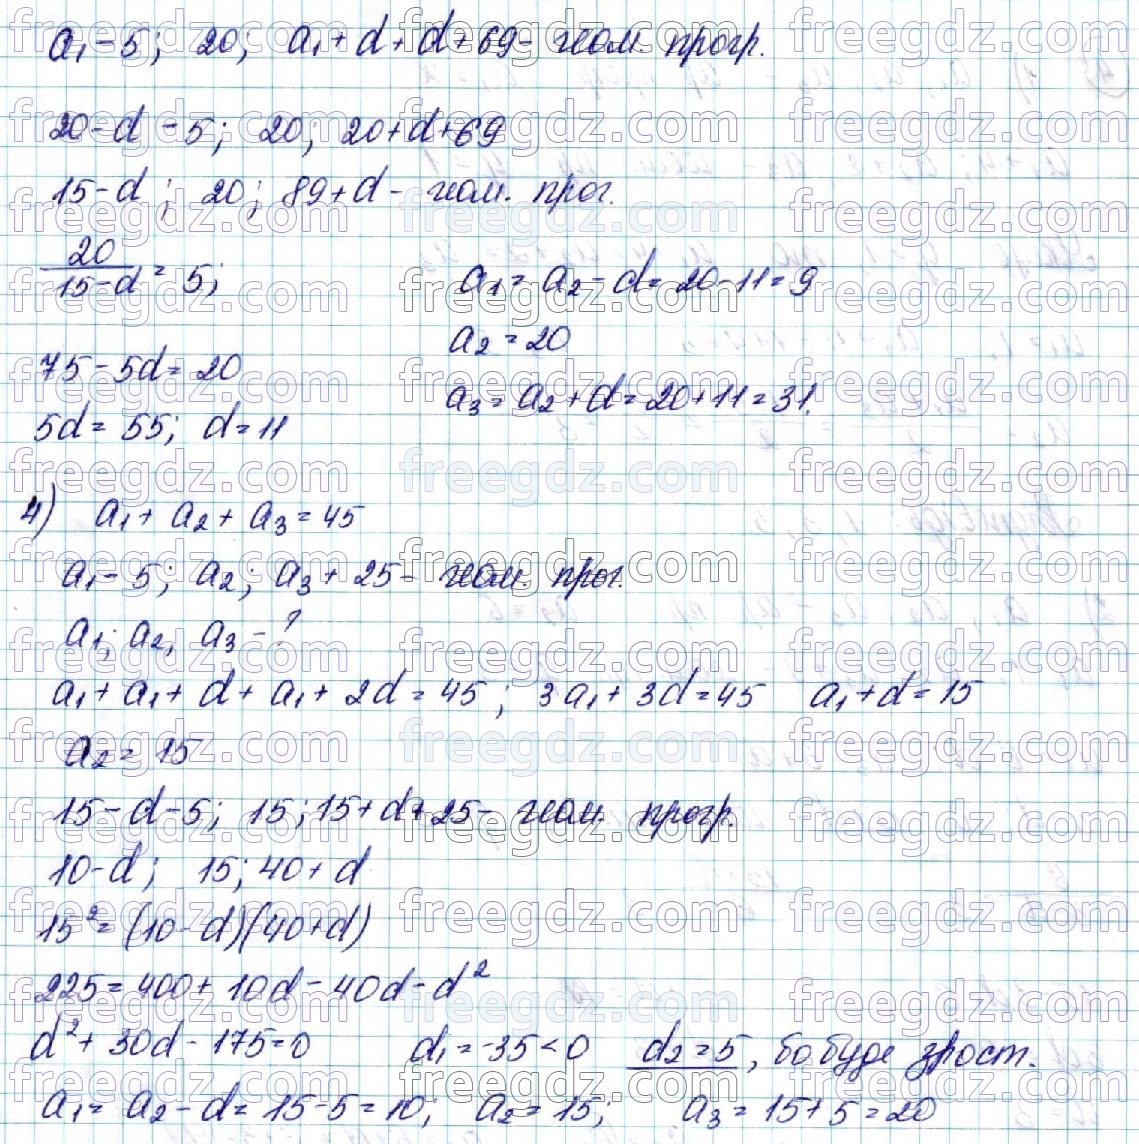 a₁ - 5; 20; a₁ + d + d + 69 - геом прогр.
20 - d - 5; 20; 20 + d + 69
15 - d; 20; 89 + d - геом. прог.
20/(15 - d) = 5;
75 - 5d = 20
5d = 55; d = 11
a₁ = a₂ - d = 20 - 11 = 9
a₂ = 20
a₃ = a₂ + d = 20 + 11 = 31.
4) a₁ + a₂ + a₃ = 45
a₁ - 5; a₂; a₃ + 25 - геом. прог.
a₁; a₂, a₃ - ?
a₁ + a₁ + d + a₁ + 2d = 45; 3a₁ + 3d = 45 a₁ + d = 15
a₂ = 15
15 - d - 5; 15; 15 + d + 25 - геом. прогр.
10 - d; 15; 40 + d
15² = (10 - d)(40 + d)
225 = 400 + 10d - 40d - d²
d² + 30d - 175 = 0 d₁ = -35 < 0 d₂ = 5, бо буде зрост.
a₁ = a₂ - d = 15 - 5 = 10; a₂ = 15; a₃ = 15 + 5 = 20
freegdz.com